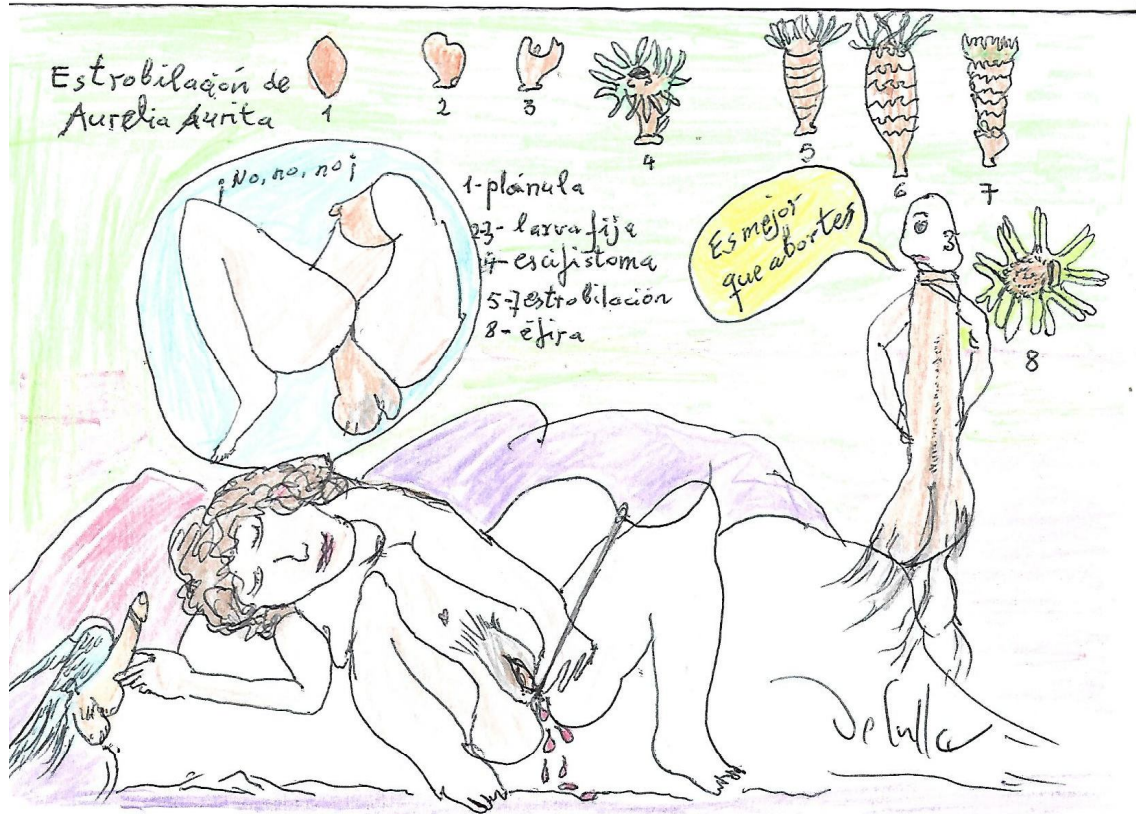 Estrobilación de
Aurelia Aurita
1
2
3
4
5
6
7
8
¡No, no, no¡
1-plánula
2-3- larva fija
4- escifistoma
5-7 estrobilación
8- éfira
Es mejor
que abortes